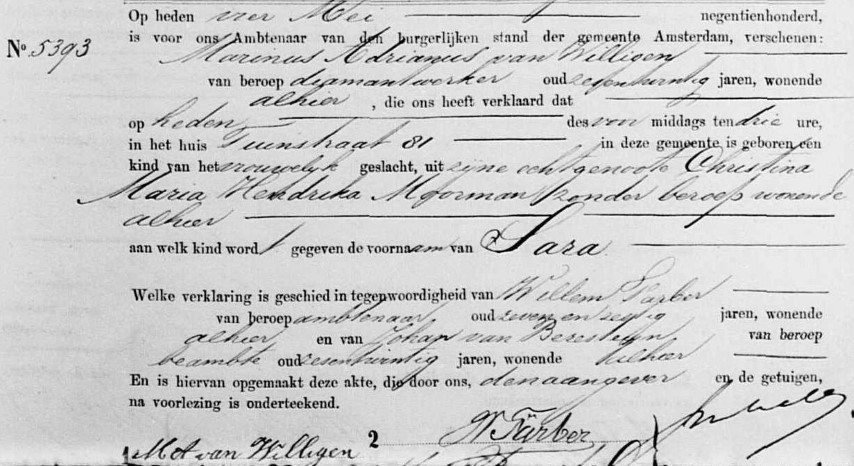 Op heden vier Mei negentienhonderd,
No. 5393 is voor ons Ambtenaar van den burgerlijken stand der gemeente Amsterdam, verschenen:
Marinus Adrianus van Willigen
van beroep diamantwerker oud zesentwintig jaren, wonende
alhier, die ons heeft verklaard dat
op heden des voor middags ten drie ure,
in het huis Tuinstraat 81 in deze gemeente is geboren een
kind van het vrouwelijk geslacht, uit zijne echtgenoote Christina
Maria Hendrika Moorman zonder beroep wonende
alhier
aan welk kind wordt gegeven de voornaam van Sara.
Welke verklaring is geschied in tegenwoordigheid van Willem Farber
van beroep ambtenaar, oud zeven en zestig jaren, wonende
alhier en van Johan van Beresteijn van beroep
beambte oud zesentwintig jaren, wonende alhier
En is hiervan opgemaakt deze akte, die door ons, den aangever en de getuigen,
na voorlezing is onderteekend.
2 W Farber
M A van Willigen